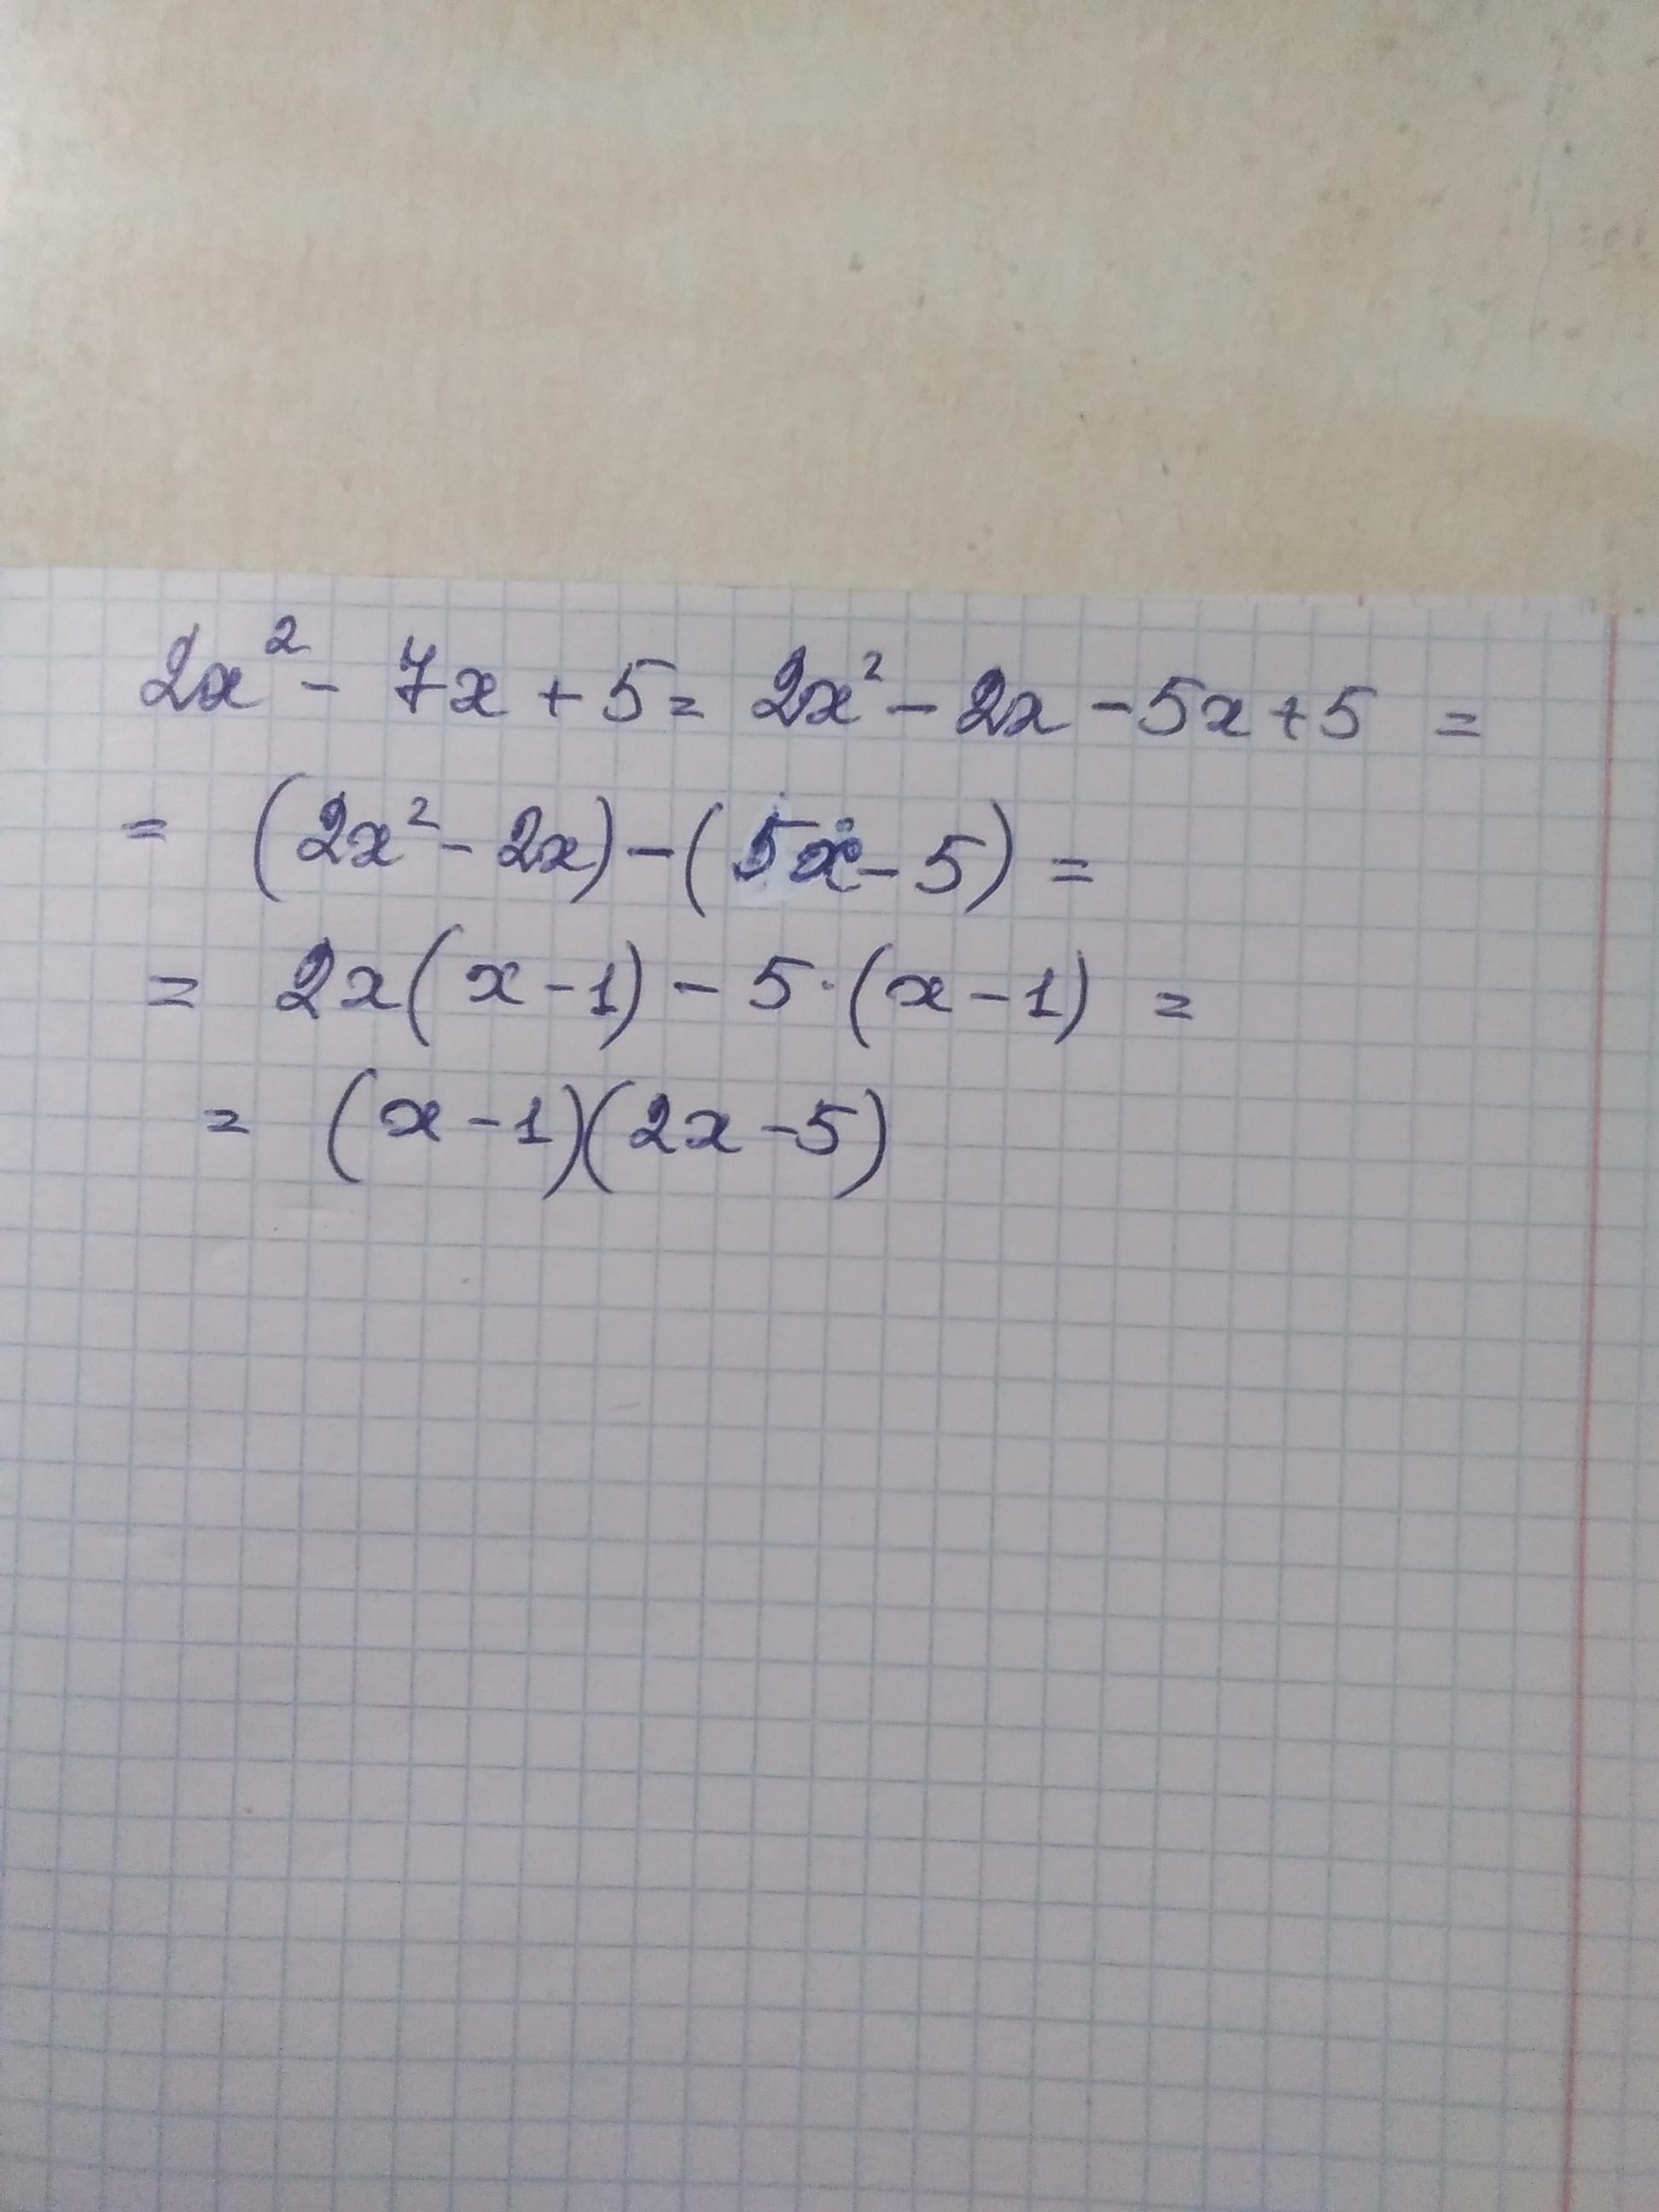 2x² - 7x + 5 = 2x² - 2x - 5x + 5 =
= (2x² - 2x) - (5x - 5) =
= 2x(x - 1) - 5·(x - 1) =
= (x - 1)(2x - 5)